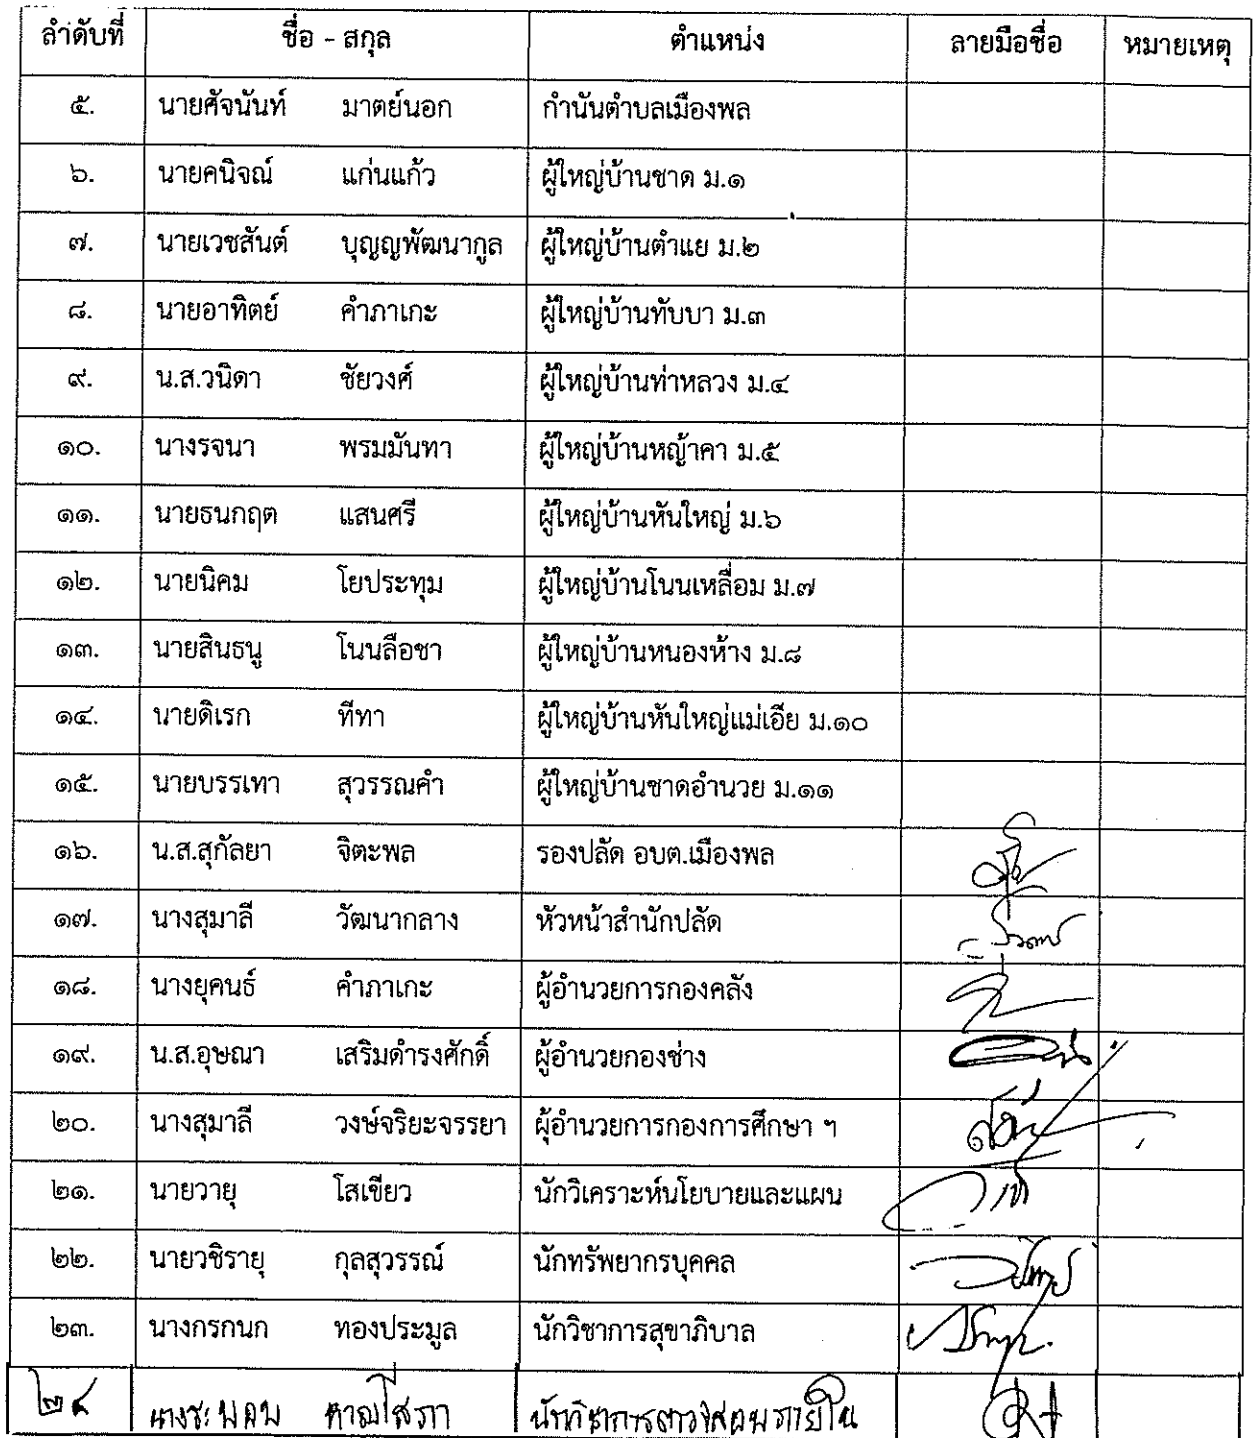 ลำดับที่ ชื่อ - สกุล ตำแหน่ง ลายมือชื่อ หมายเหตุ
๕. นายศัจนันท์ มาตย์นอก กำนันตำบลเมืองพล
๖. นายคนิจณ์ แก่นแก้ว ผู้ใหญ่บ้านชาด ม.๑
๗. นายเวชสันต์ บุญญพัฒนากูล ผู้ใหญ่บ้านตำแย ม.๒
๘. นายอาทิตย์ คำภาเกะ ผู้ใหญ่บ้านทับบา ม.๓
๙. น.ส.วนิดา ชัยวงศ์ ผู้ใหญ่บ้านท่าหลวง ม.๔
๑๐. นางรจนา พรมมันทา ผู้ใหญ่บ้านหญ้าคา ม.๕
๑๑. นายธนกฤต แสนศรี ผู้ใหญ่บ้านหันใหญ่ ม.๖
๑๒. นายนิคม โยประทุม ผู้ใหญ่บ้านโนนเหลื่อม ม.๗
๑๓. นายสินธนู โนนลือชา ผู้ใหญ่บ้านหนองห้าง ม.๘
๑๔. นายดิเรก ทีทา ผู้ใหญ่บ้านหันใหญ่แม่เอีย ม.๑๐
๑๕. นายบรรเทา สุวรรณคำ ผู้ใหญ่บ้านชาดอำนวย ม.๑๑
๑๖. น.ส.สุกัลยา จิตะพล รองปลัด อบต.เมืองพล
๑๗. นางสุมาลี วัฒนากลาง หัวหน้าสำนักปลัด
๑๘. นางยุคนธ์ คำภาเกะ ผู้อำนวยการกองคลัง
๑๙. น.ส.อุษณา เสริมดำรงศักดิ์ ผู้อำนวยกองช่าง
๒๐. นางสุมาลี วงษ์จริยะจรรยา ผุ้อำนวยการกองการศึกษา ฯ
๒๑. นายวายุ โสเขียว นักวิเคราะห์นโยบายและแผน
๒๒. นายวชิรายุ กุลสุวรรณ์ นักทรัพยากรบุคคล
๒๓. นางกรกนก ทองประมูล นักวิชาการสุขาภิบาล
๒๔ นักวิชาการตรวจสอบภายใน